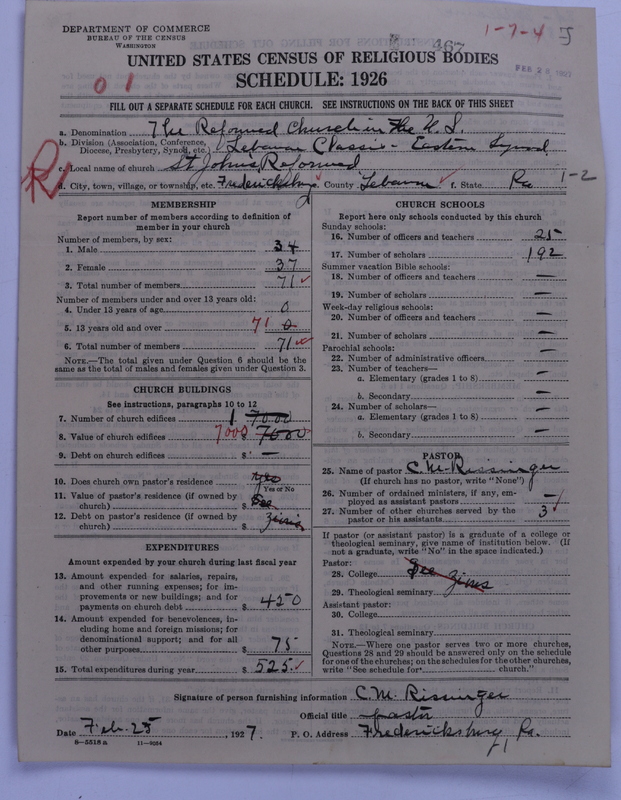 DEPARTMENT OF COMMERCE
BUREAU OF THE CENSUS
WASHINGTON
367
1-7-4
FEB 28 1927
UNITED STATES CENSUS OF RELIGIOUS BODIES
SCHEDULE: 1926
0 1
FILL OUT A SEPARATE SCHEDULE FOR EACH CHURCH. SEE INSTRUCTIONS ON THE BACK OF THIS SHEET
a. Denomination The Reformed Church in the U.S.
b. Division (Association, Conference, Diocese, Presbytery, Synod, etc.) Lebanon Classis - Eastern Synod
c. Local name of church St Johns Reformed
R
d. City, town, village, or township, etc. Fredericksburg County Lebanon f. State Pa 1-2
MEMBERSHIP
Report number of members according to definition of
member in your church
Number of members, by sex:
1. Male 34
2. Female 37
3. Total number of members 71
Number of members under and over 13 years old:
4. Under 13 years of age 0
5. 13 years old and over 71 0
6. Total number of members 71
NOTE.—The total given under Question 6 should be the
same as the total of males and females given under Question 3.
CHURCH BUILDINGS
See instructions, paragraphs 10 to 12
7. Number of church edifices 1 7000
8. Value of church edifices 7000 $ 7000
9. Debt on church edifices $ —
10. Does church own pastor's residence yes
Yes or No
11. Value of pastor's residence (if owned by
church) $ See
12. Debt on pastor's residence (if owned by
church) $ Zions
EXPENDITURES
Amount expended by your church during last fiscal year
13. Amount expended for salaries, repairs,
and other running expenses; for im-
provements or new buildings; and for
payments on church debt $ 450
14. Amount expended for benevolences, in-
cluding home and foreign missions; for
denominational support; and for all
other purposes $ 75
15. Total expenditures during year $ 525
CHURCH SCHOOLS
Report here only schools conducted by this church
Sunday schools:
16. Number of officers and teachers 25
17. Number of scholars 192
Summer vacation Bible schools:
18. Number of officers and teachers —
19. Number of scholars —
Week-day religious schools:
20. Number of officers and teachers —
21. Number of scholars —
Parochial schools:
22. Number of administrative officers —
23. Number of teachers—
a. Elementary (grades 1 to 8) —
b. Secondary —
24. Number of scholars—
a. Elementary (grades 1 to 8) —
b. Secondary —
PASTOR
25. Name of pastor C. M. Rissinger
(If church has no pastor, write "None")
26. Number of ordained ministers, if any, em-
ployed as assistant pastors —
27. Number of other churches served by the
pastor or his assistants 3
If pastor (or assistant pastor) is a graduate of a college or
theological seminary, give name of institution below. (If
not a graduate, write "No" in the space indicated.)
Pastor:
28. College See Zions
29. Theological seminary
Assistant pastor:
30. College
31. Theological seminary
NOTE.—Where one pastor serves two or more churches,
Questions 28 and 29 should be answered only on the schedule
for one of the churches; on the schedules for the other churches,
write "See schedule for church."
Signature of person furnishing information C. M. Rissinger
Official title pastor
Date Feb. 25, 1927. P. O. Address Fredericksburg, Pa.
8-5518 a 11-9264